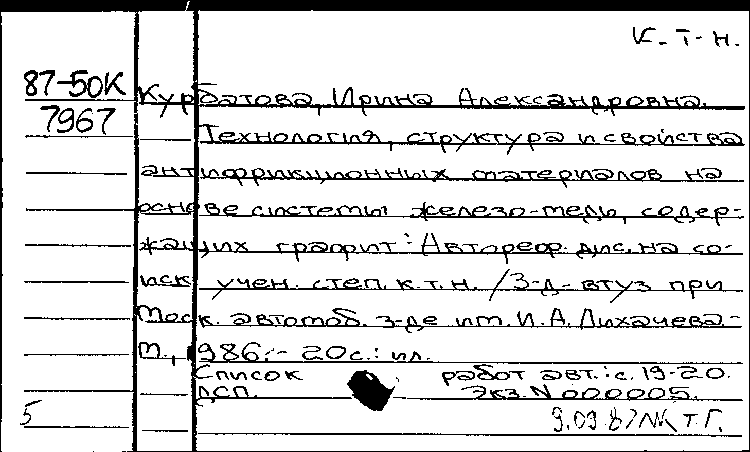 К. Т. Н.
87-50К
7967
Курбатова, Ирина Александровна.
Технология, структура и свойства
антифрикционных материалов на
основе системы железо-медь, содер-
жащих графит: Автореф. дис. на со-
иск. учен. степ. к.т.н. / З-д-втуз при
Моск. автомоб. з-де им. И.А. Лихачева.-
М., 1986.- 20с.: ил.
Список работ авт.: с. 19-20.
ДСП. Экз. N 000005.
5
9.09.87 Т.Г.